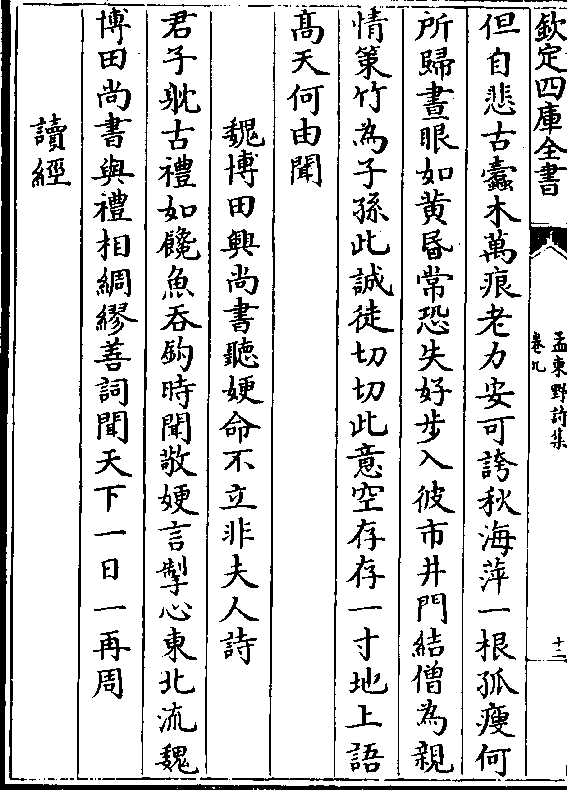 欽定四庫全書
孟東野詩集
卷九
十二
但自悲古蠧木萬痕老力安可誇秋海萍一根孤瘦何
所歸晝眼如黄昏常恐失好步入彼市井門結僧為親
情策竹為子孫此誠徒切切此意空存存一寸地上語
髙天何由聞
魏博田興尚書聽㛐命不立非夫人詩
君子躭古禮如饞魚吞鈎時聞敬㛐言掣心東北流魏
博田尚書與禮相綢繆善詞聞天下一日一再周
讀經